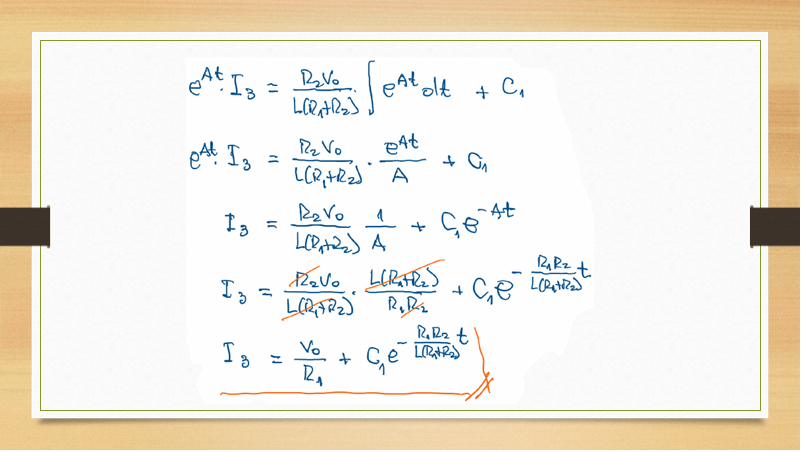 e^{At} · I₃ = R₂V₀ / L(R₁+R₂) · ∫ e^{At} dt + C₁
e^{At} · I₃ = R₂V₀ / L(R₁+R₂) · e^{At} / A + C₁
I₃ = R₂V₀ / L(R₁+R₂) · 1 / A + C₁e^{-At}
I₃ = R₂V₀ / L(R₁+R₂) · L(R₁+R₂) / R₁R₂ + C₁e^{-R₁R₂ / L(R₁+R₂) t}
I₃ = V₀ / R₁ + C₁e^{-R₁R₂ / L(R₁+R₂) t}